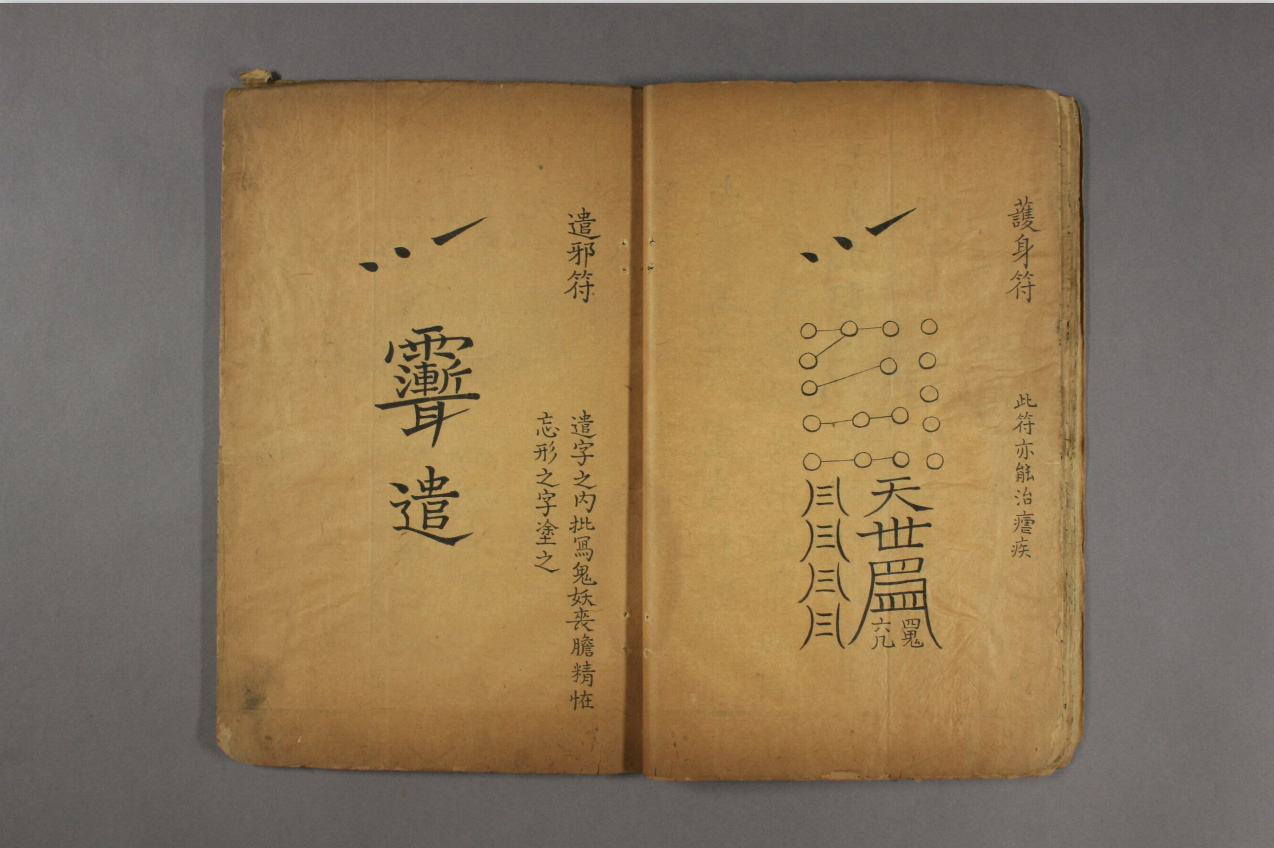 護身符
此符亦能治瘧疾
天
世
四鬼
六几
遣邪符
遣字之内批冩鬼妖喪膽精怪
忘形之字塗之
遣